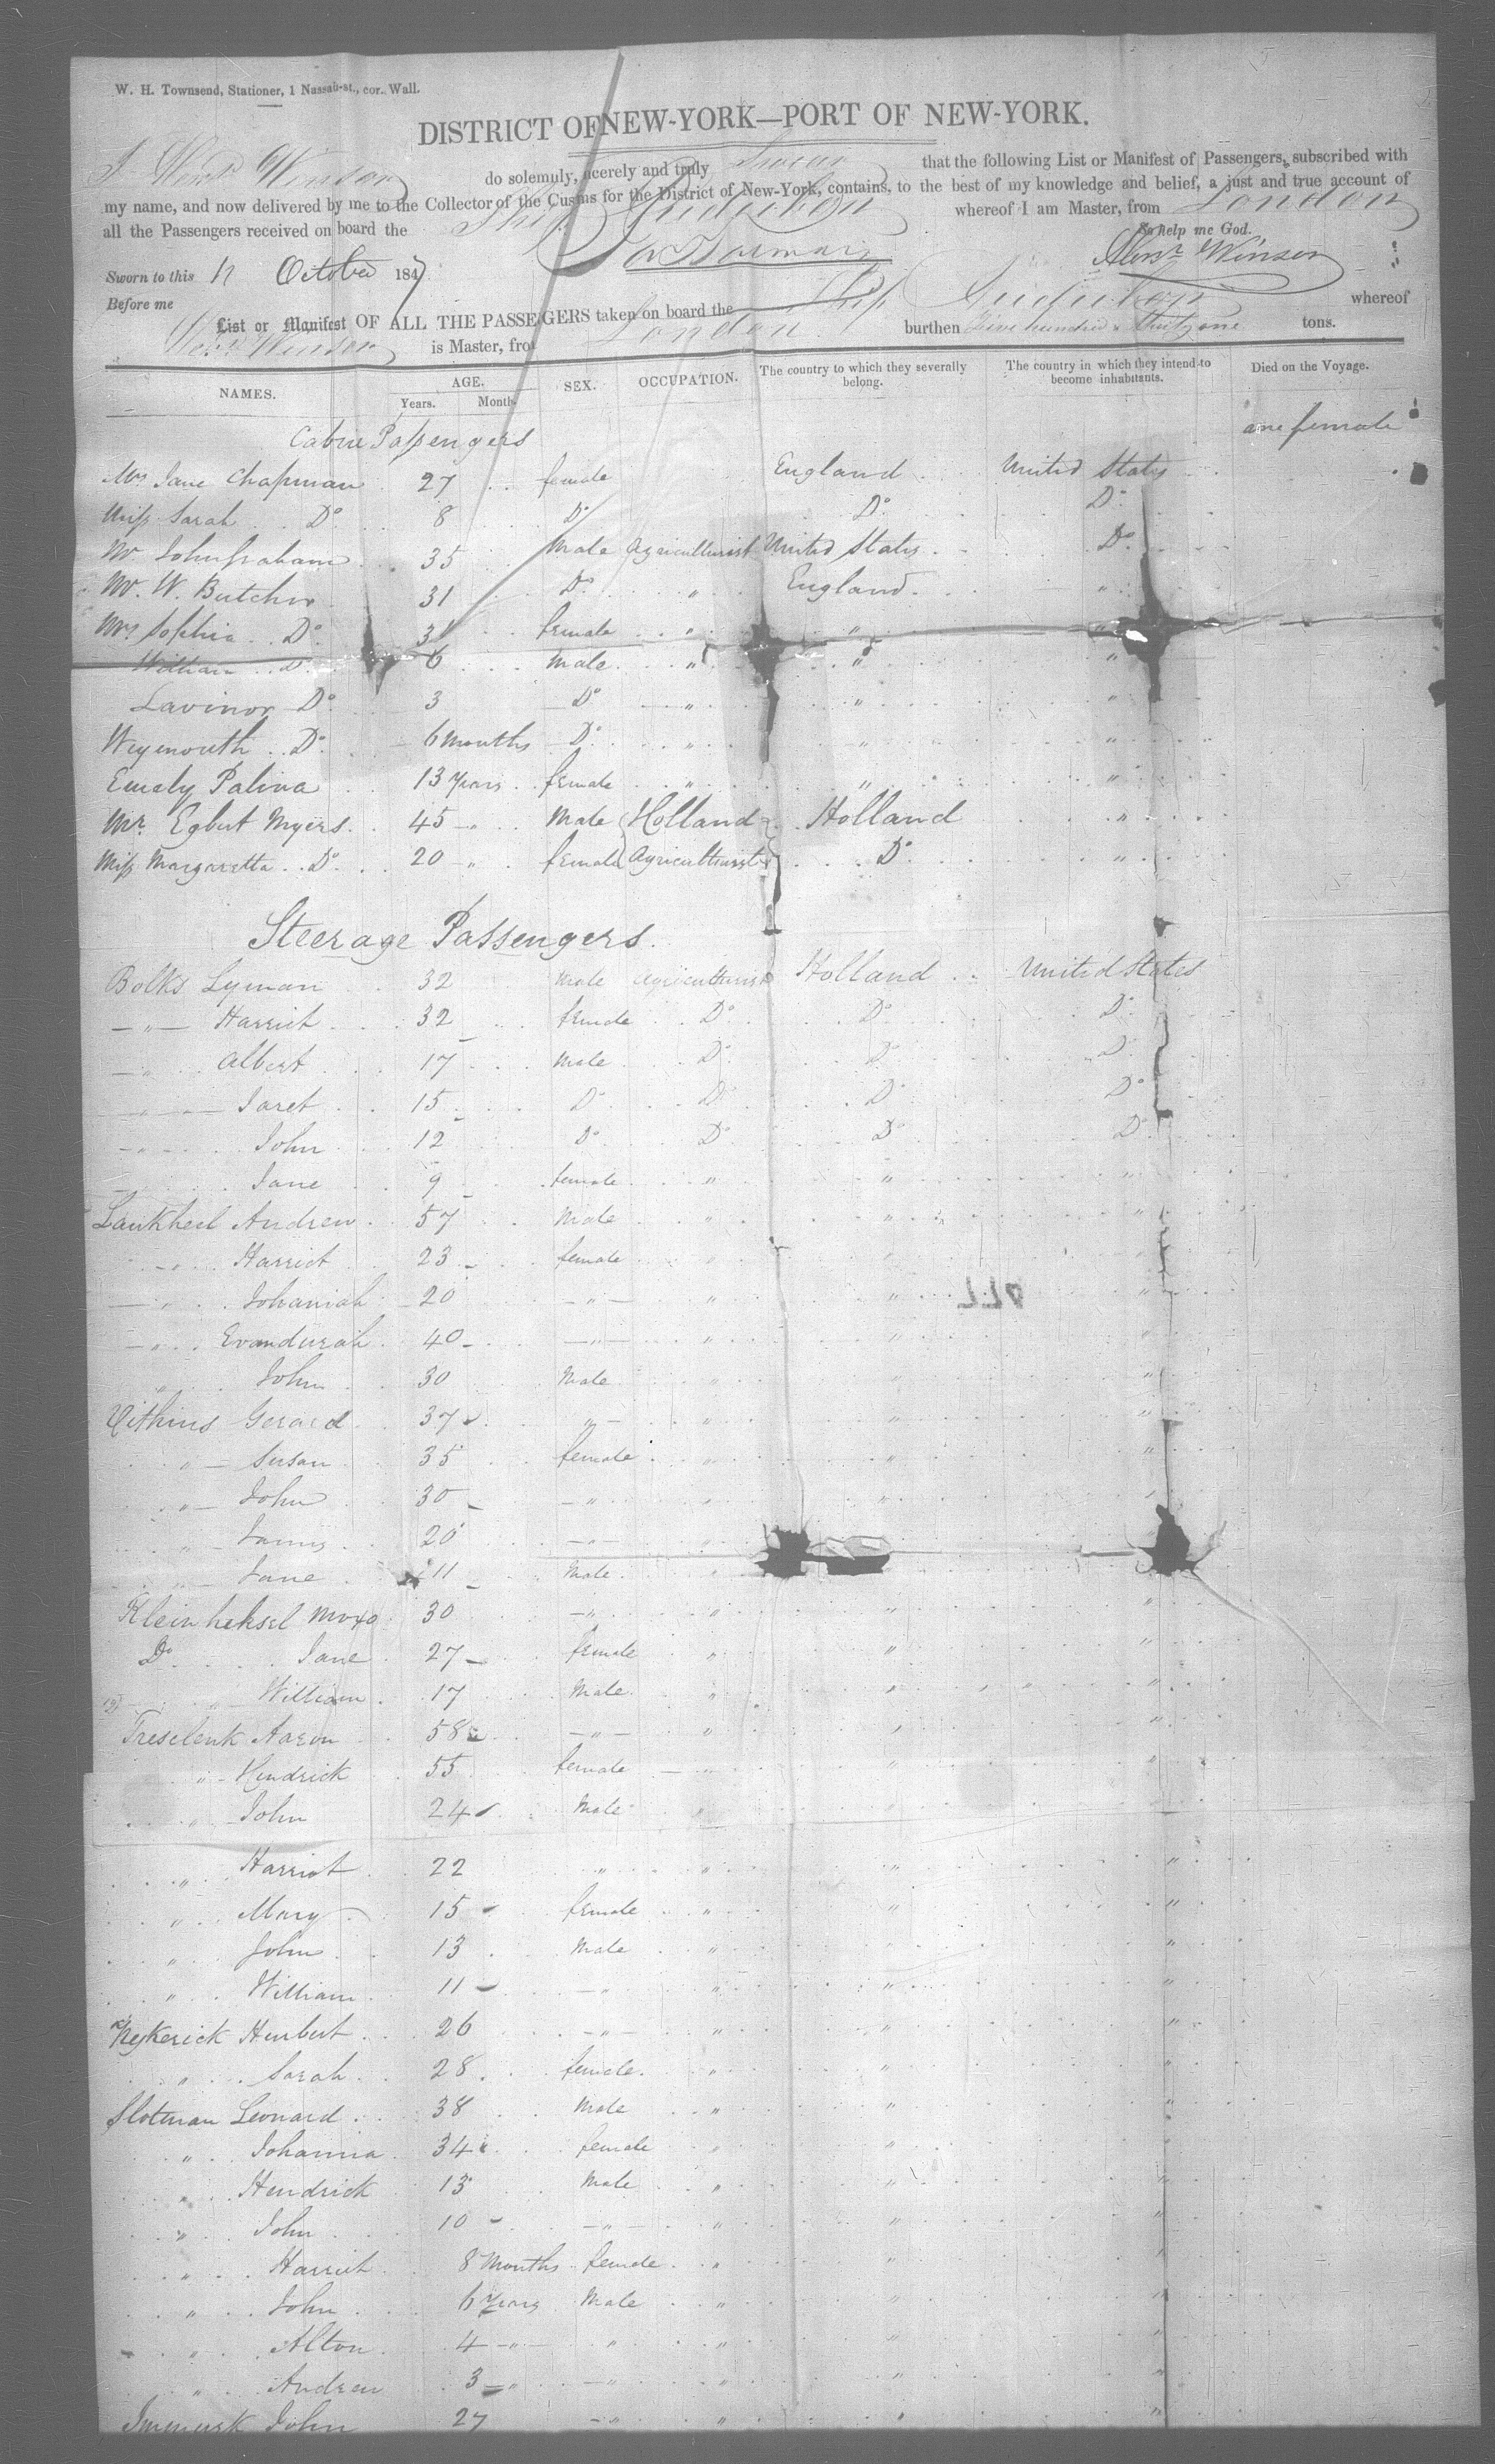 W. H. Townsend, Stationer, 1 Nassau-st., cor. Wall.
DISTRICT OF NEW-YORK—PORT OF NEW-YORK.
I Winsor do solemnly, ncerely and truly Swear that the following List or Manifest of Passengers, subscribed with
my name, and now delivered by me to the Collector of the Cus ms for the District of New-York, contains, to the best of my knowledge and belief, a just and true account of
all the Passengers received on board the Ship Audubon whereof I am Master, from London
So help me God.
Sworn to this October 1847 Winsor
Before me
List or Manifest OF ALL THE PASSENGERS taken on board the Ship Audubon whereof
Winsor is Master, fro London burthen five hundred & thirty one tons.
NAMES. AGE. Years. Month SEX. OCCUPATION. The country to which they severally belong. The country in which they intend to become inhabitants. Died on the Voyage.
Cabin Passengers one female
Mrs Jane Chapman 27 female England United States
Miss Sarah Do 8 Do Do Do
Mr John Graham 35 Male Agriculturist United States Do
Mr. W. Butcher 31 Do " England "
Mrs Sophia Do 31 female " " "
William Do 6 Male " " "
Lavinor Do 3 Do " " "
Weymouth Do 6 Months Do " " "
Emely Palina 13 Years female " " "
Mr. Egbert Myers 45 " Male Holland Holland "
Miss Margaretta Do 20 " female Agriculturist Do "
Steerage Passengers.
Bolks Lyman 32 Male Agriculturist Holland United States
" Harriet 32 female Do Do Do
" Albert 17 Male Do Do Do
" Jaret 15 Do Do Do Do
" John 12 Do Do Do Do
Jane 9 female " " "
Lankheel Andrew 57 Male " " "
" Harriet 23 female " " "
" Johaniah 20 " " " "
" Evandurah 40 " " " "
" John 30 Male " " "
Withins Gerard 37 " " " "
" Susan 35 female " " "
" John 30 " " " "
" Jannis 20 " " "
" Jane 11 Male "
Kleinheksel 30 " " " "
Do Jane 27 female " " "
" William 17 Male " " "
Treselenk Aaron 58 " " " "
" Hendrick 55 female " " "
" John 24 Male " " "
" Harriot 22 " " " "
" Mary 15 female " " "
" John 13 Male " " "
" William 11 " " " "
Nykerick Hurbert 26 " " " "
" Sarah 28 female " " "
Slotman Leonard 38 Male " " "
" Johanna 34 female " " "
" Hendrick 13 Male " " "
" John 10 " " " "
" Harriet 8 Months female " " "
" John 6 Years Male " " "
" Alton 4 " " " " "
" Andrew 3 " " " " "
John 27 " " " "